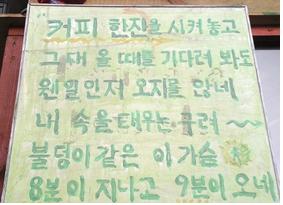 "커피 한잔을 시켜 놓고
그대 올 때를 기다려 봐도
웬일인지 오지를 않네
내 속을 태우는 구려 ~~
불덩이 같은 이 가슴
8분이 지나고 9분이 오네